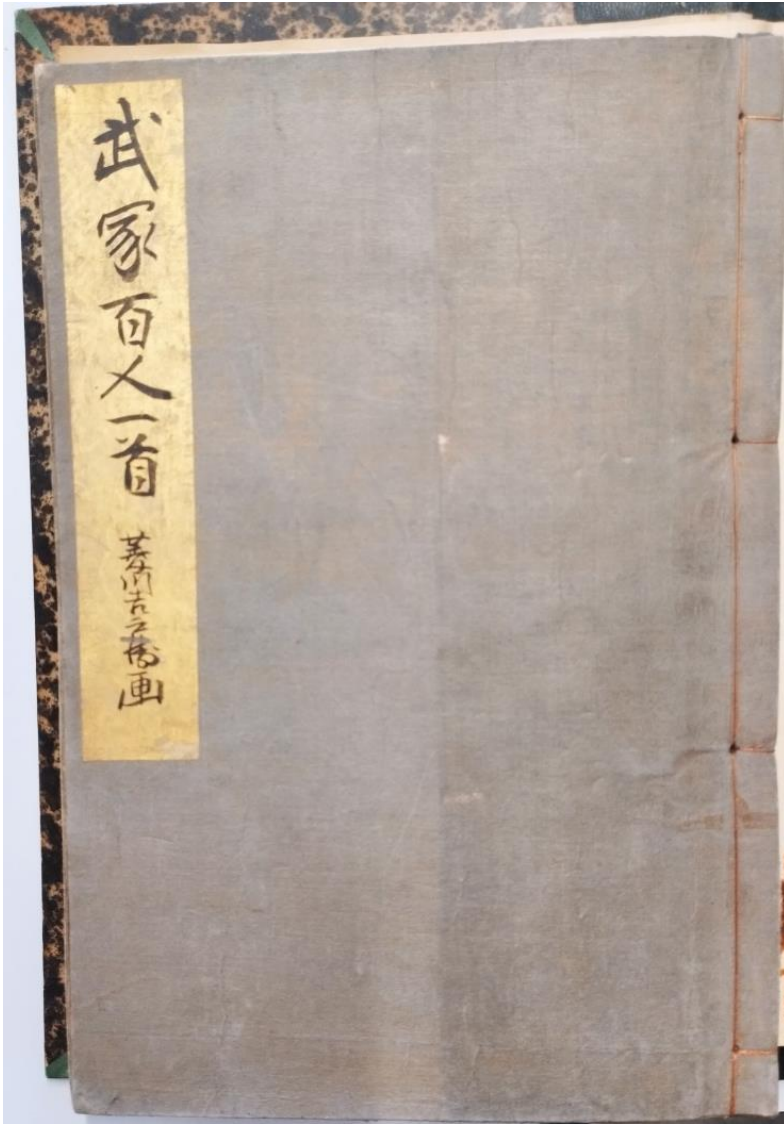 武家百人一首
菱川吉兵衛画